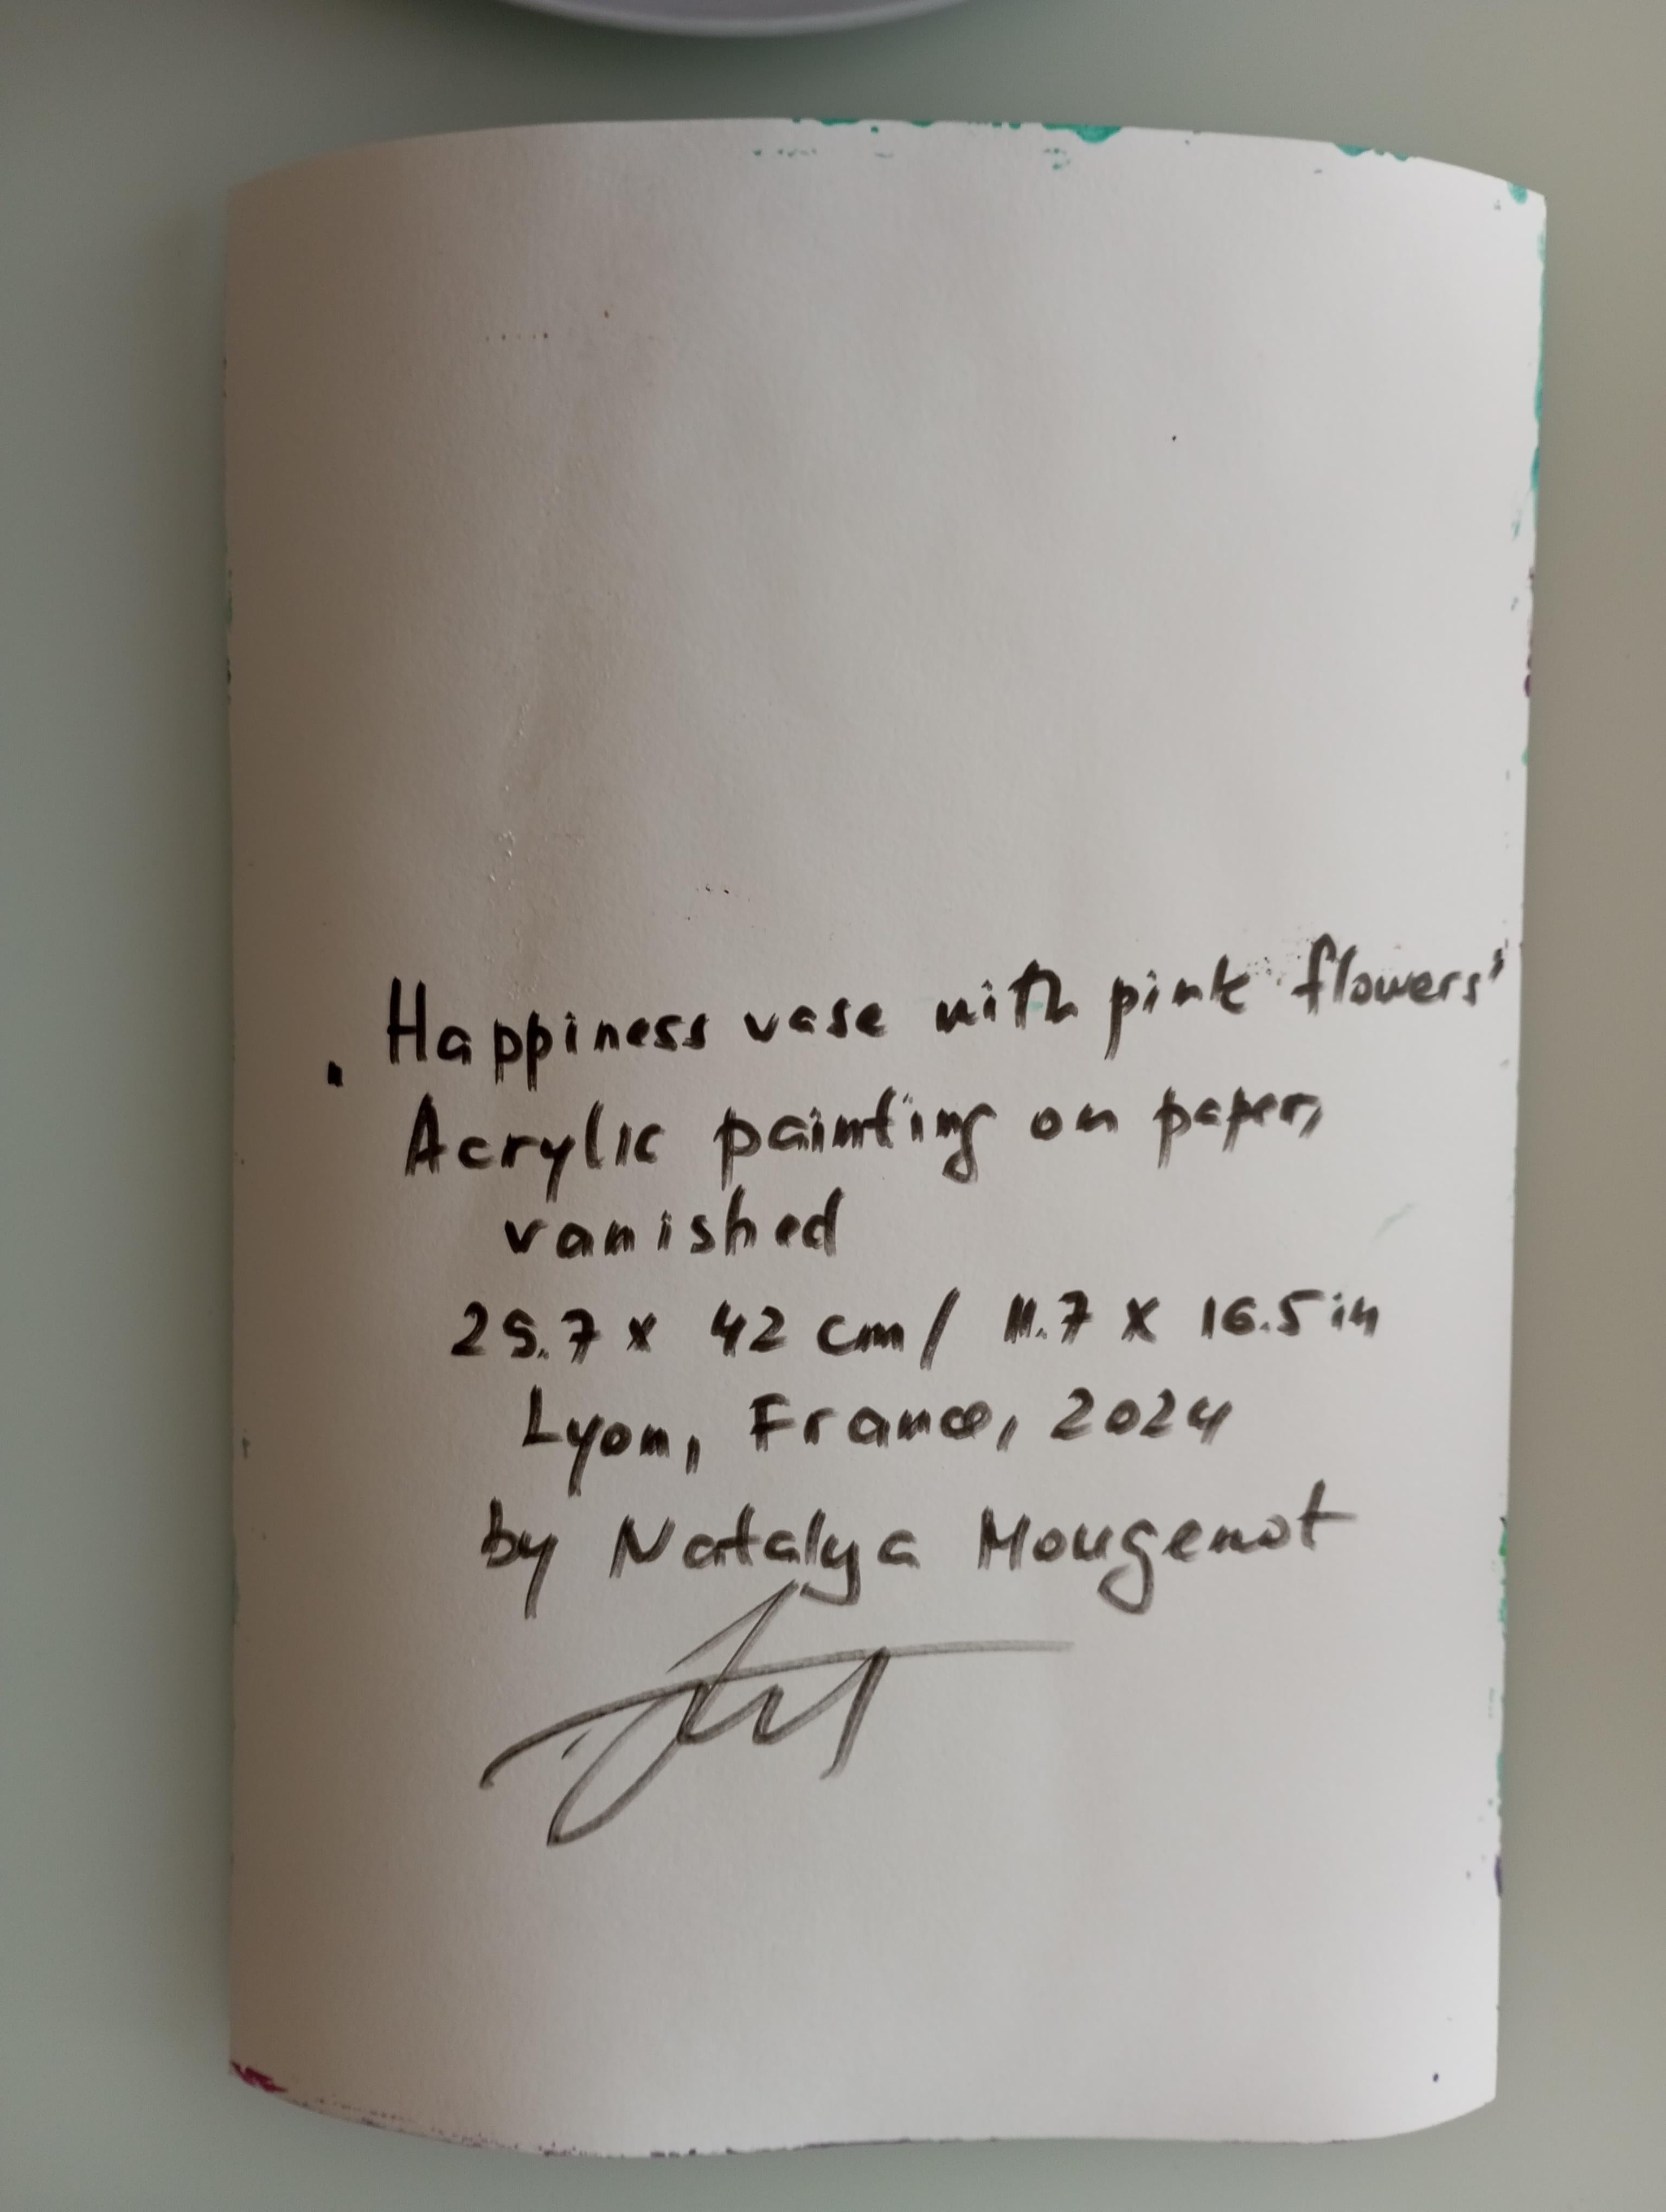 "Happiness vase with pink flowers"
Acrylic painting on paper,
vanished
29.7 x 42 cm / 11.7 x 16.5 in
Lyon, France, 2024
by Natalya Mougenot